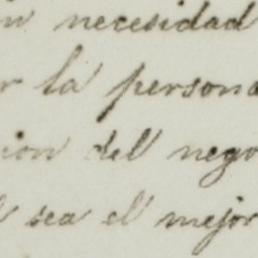 n necesidad
r la persona
ion del nego
l sea el mejor